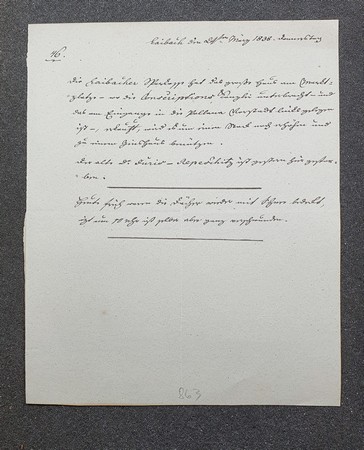 Laibach den 24ten März 1838. Donnerstag
16.
Die Laibacher Sparkasse hat das große Haus am
platze – wo die Conscriptions Kanzlei unterbracht – und
das am Eingange in die Pollana Vorstadt links gelegen
ist –, erkauft, wird es um einen Stock noch erhöhen und
zu einem Zinshaus benützen.
Der alte Dr. – ist gestern hier gestor-
ben.
Heute früh waren die Dächer wieder mit Schnee bedeckt,
jetzt um 10 Uhr ist selber aber ganz verschwunden.
263